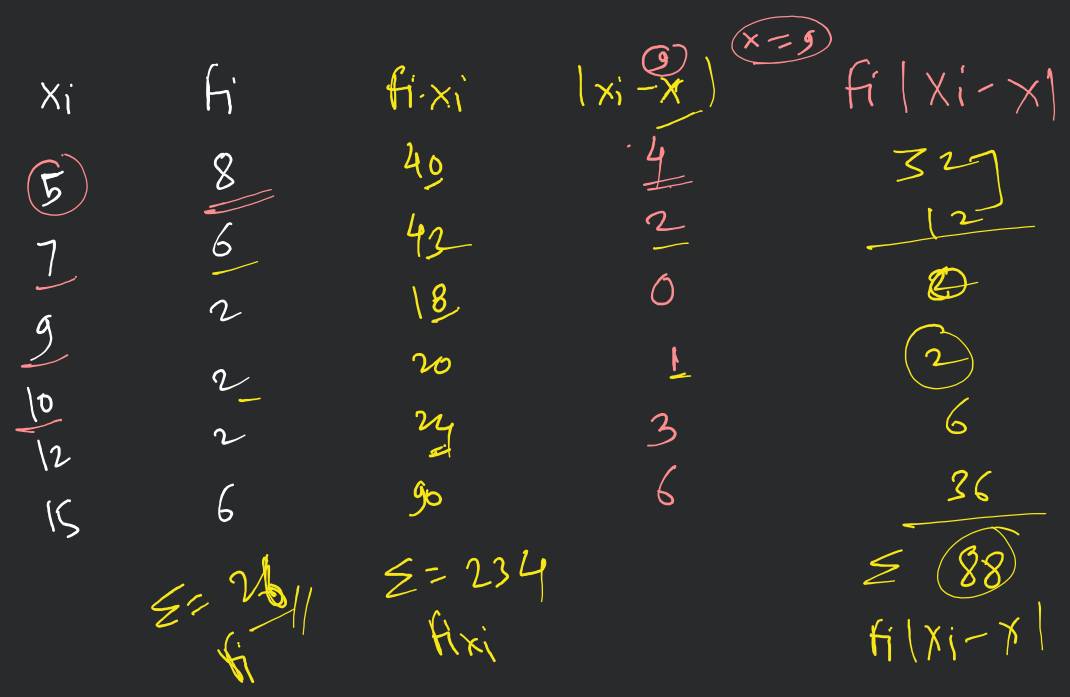 x = 9
9
xi fi fi·xi |xi - x| fi|xi - x|
5 8 40 4 32
7 6 42 2 12
9 2 18 0
10 2 20 1 2
12 2 24 3 6
15 6 90 6 36
Σ = 26 Σ = 234 Σ 88
fi fixi fi|xi - x|